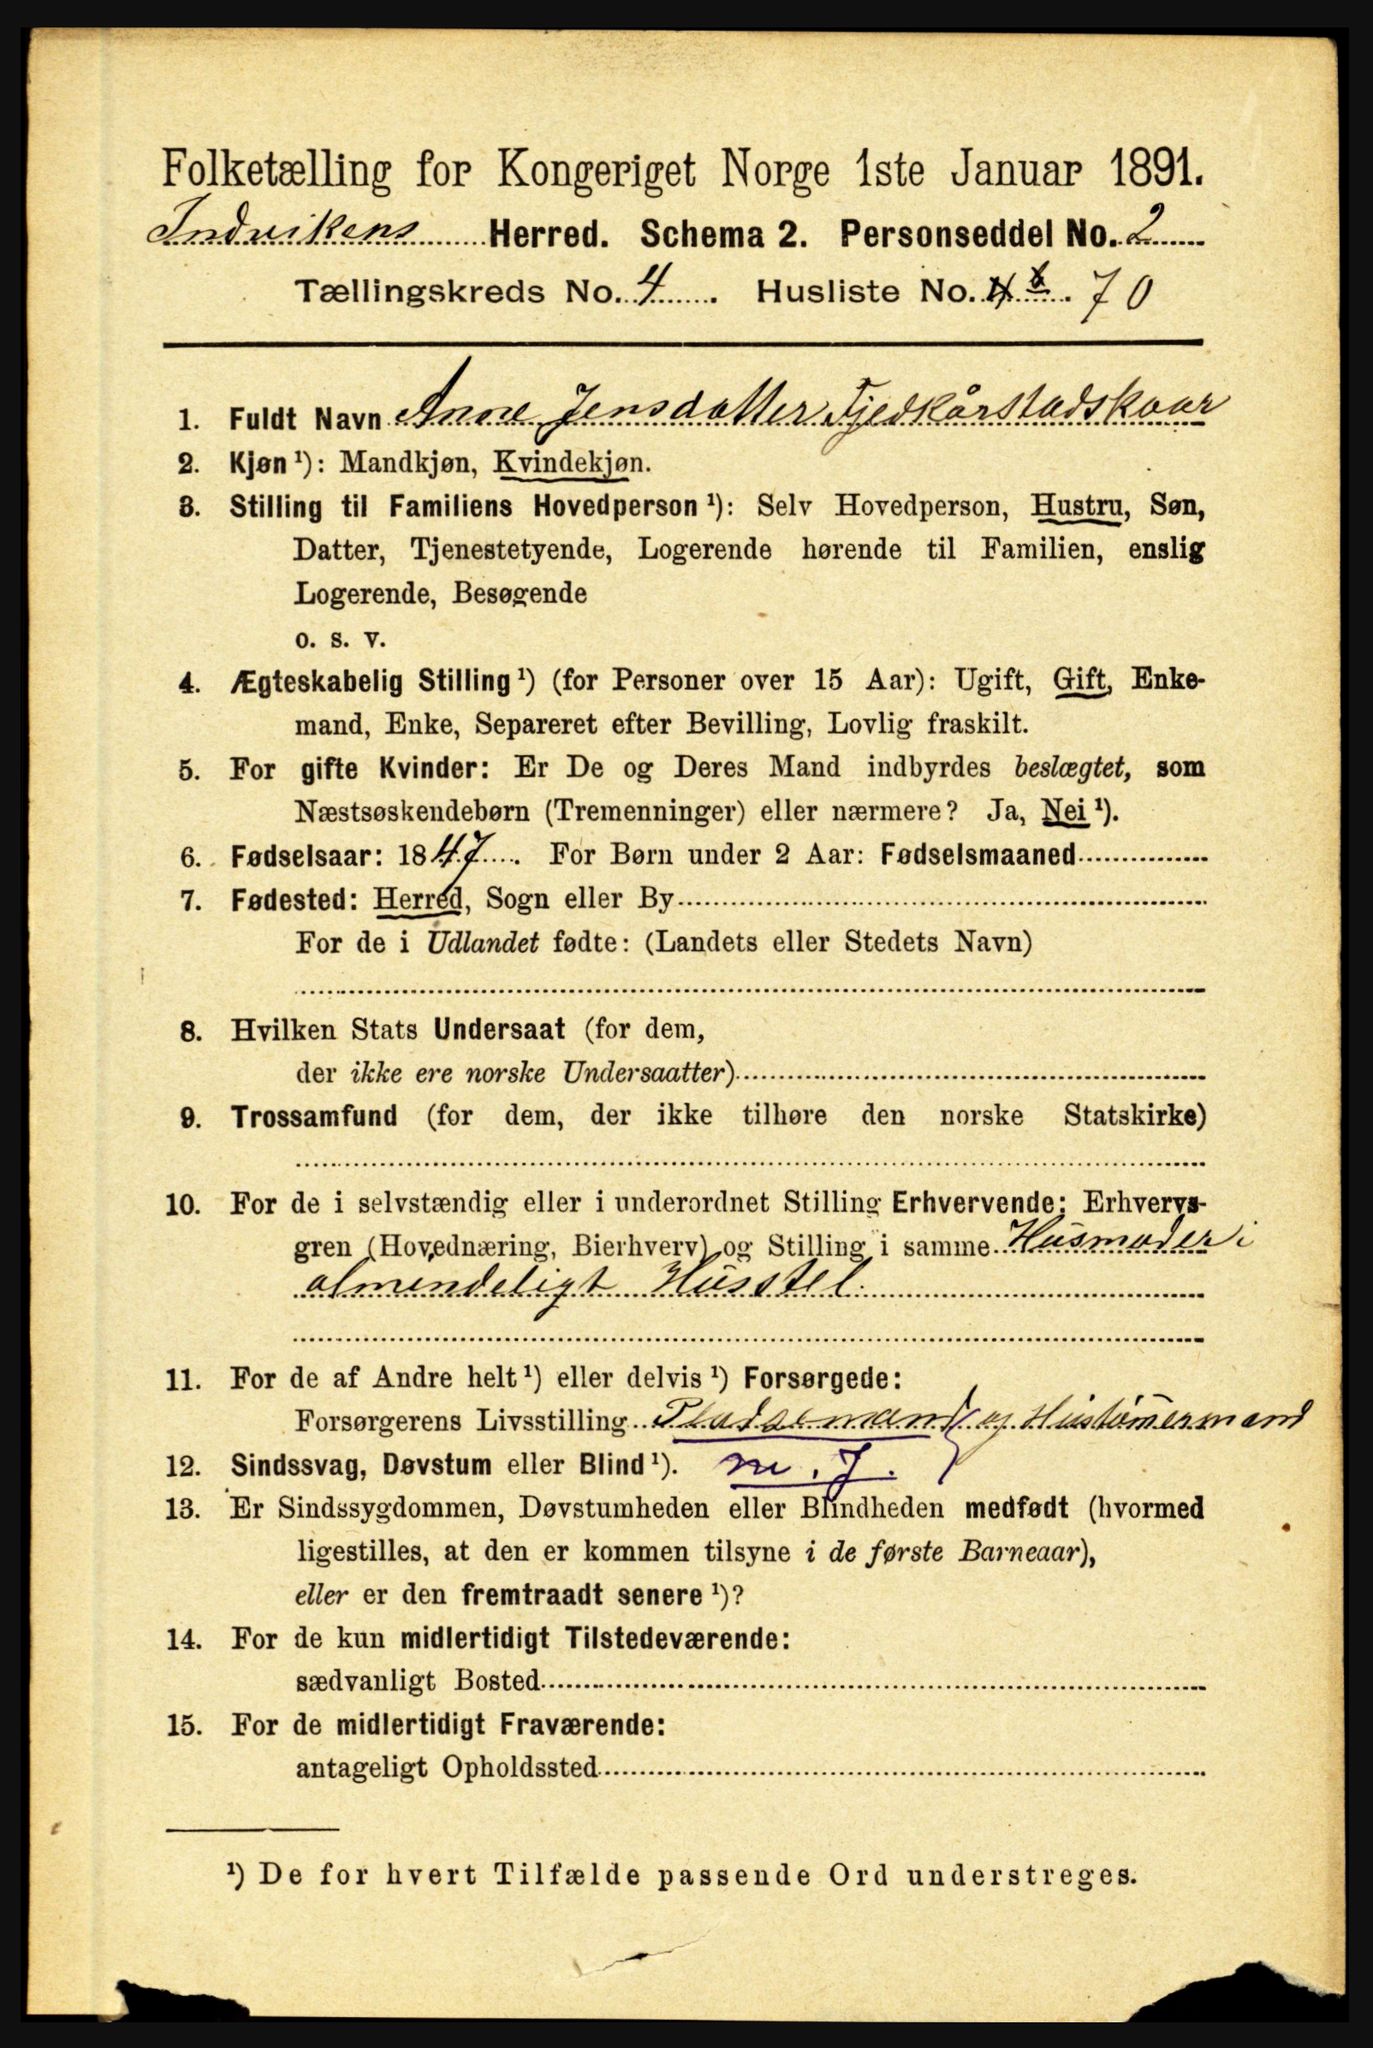 Folketælling for Kongeriget Norge 1ste Januar 1891.
Indvikens Herred. Schema 2. Personseddel No. 2
Tællingskreds No. 4. Husliste No. 70
1. Fuldt Navn Anne Jensdatter Tjedkårstadskaar
2. Kjøn ¹): Mandkjøn, Kvindekjøn.
3. Stilling til Familiens Hovedperson ¹): Selv Hovedperson, Hustru, Søn,
Datter, Tjenestetyende, Logerende hørende til Familien, enslig
Logerende, Besøgende
o. s. v.
4. Ægteskabelig Stilling ¹) (for Personer over 15 Aar): Ugift, Gift, Enke-
mand, Enke, Separeret efter Bevilling, Lovlig fraskilt.
5. For gifte Kvinder: Er De og Deres Mand indbyrdes beslægtet, som
Næstsøskendebørn (Tremenninger) eller nærmere? Ja, Nei ¹).
6. Fødselsaar: 1847. For Børn under 2 Aar: Fødselsmaaned
7. Fødested: Herred, Sogn eller By
For de i Udlandet fødte: (Landets eller Stedets Navn)
8. Hvilken Stats Undersaat (for dem,
der ikke ere norske Undersaatter)
9. Trossamfund (for dem, der ikke tilhøre den norske Statskirke)
10. For de i selvstændig eller i underordnet Stilling Erhvervende: Erhvervs-
gren (Hovednæring, Bierhverv) og Stilling i samme Husmoder i
almendeligt Husstel.
11. For de af Andre helt ¹) eller delvis ¹) Forsørgede:
Forsørgerens Livsstilling Pladsemand og Hustømermand
12. Sindssvag, Døvstum eller Blind ¹). m. J.
13. Er Sindssygdommen, Døvstumheden eller Blindheden medfødt (hvormed
ligestilles, at den er kommen tilsyne i de første Barneaar),
eller er den fremtraadt senere ¹)?
14. For de kun midlertidigt Tilstedeværende:
sædvanligt Bosted
15. For de midlertidigt Fraværende:
antageligt Opholdssted
¹) De for hvert Tilfælde passende Ord understreges.